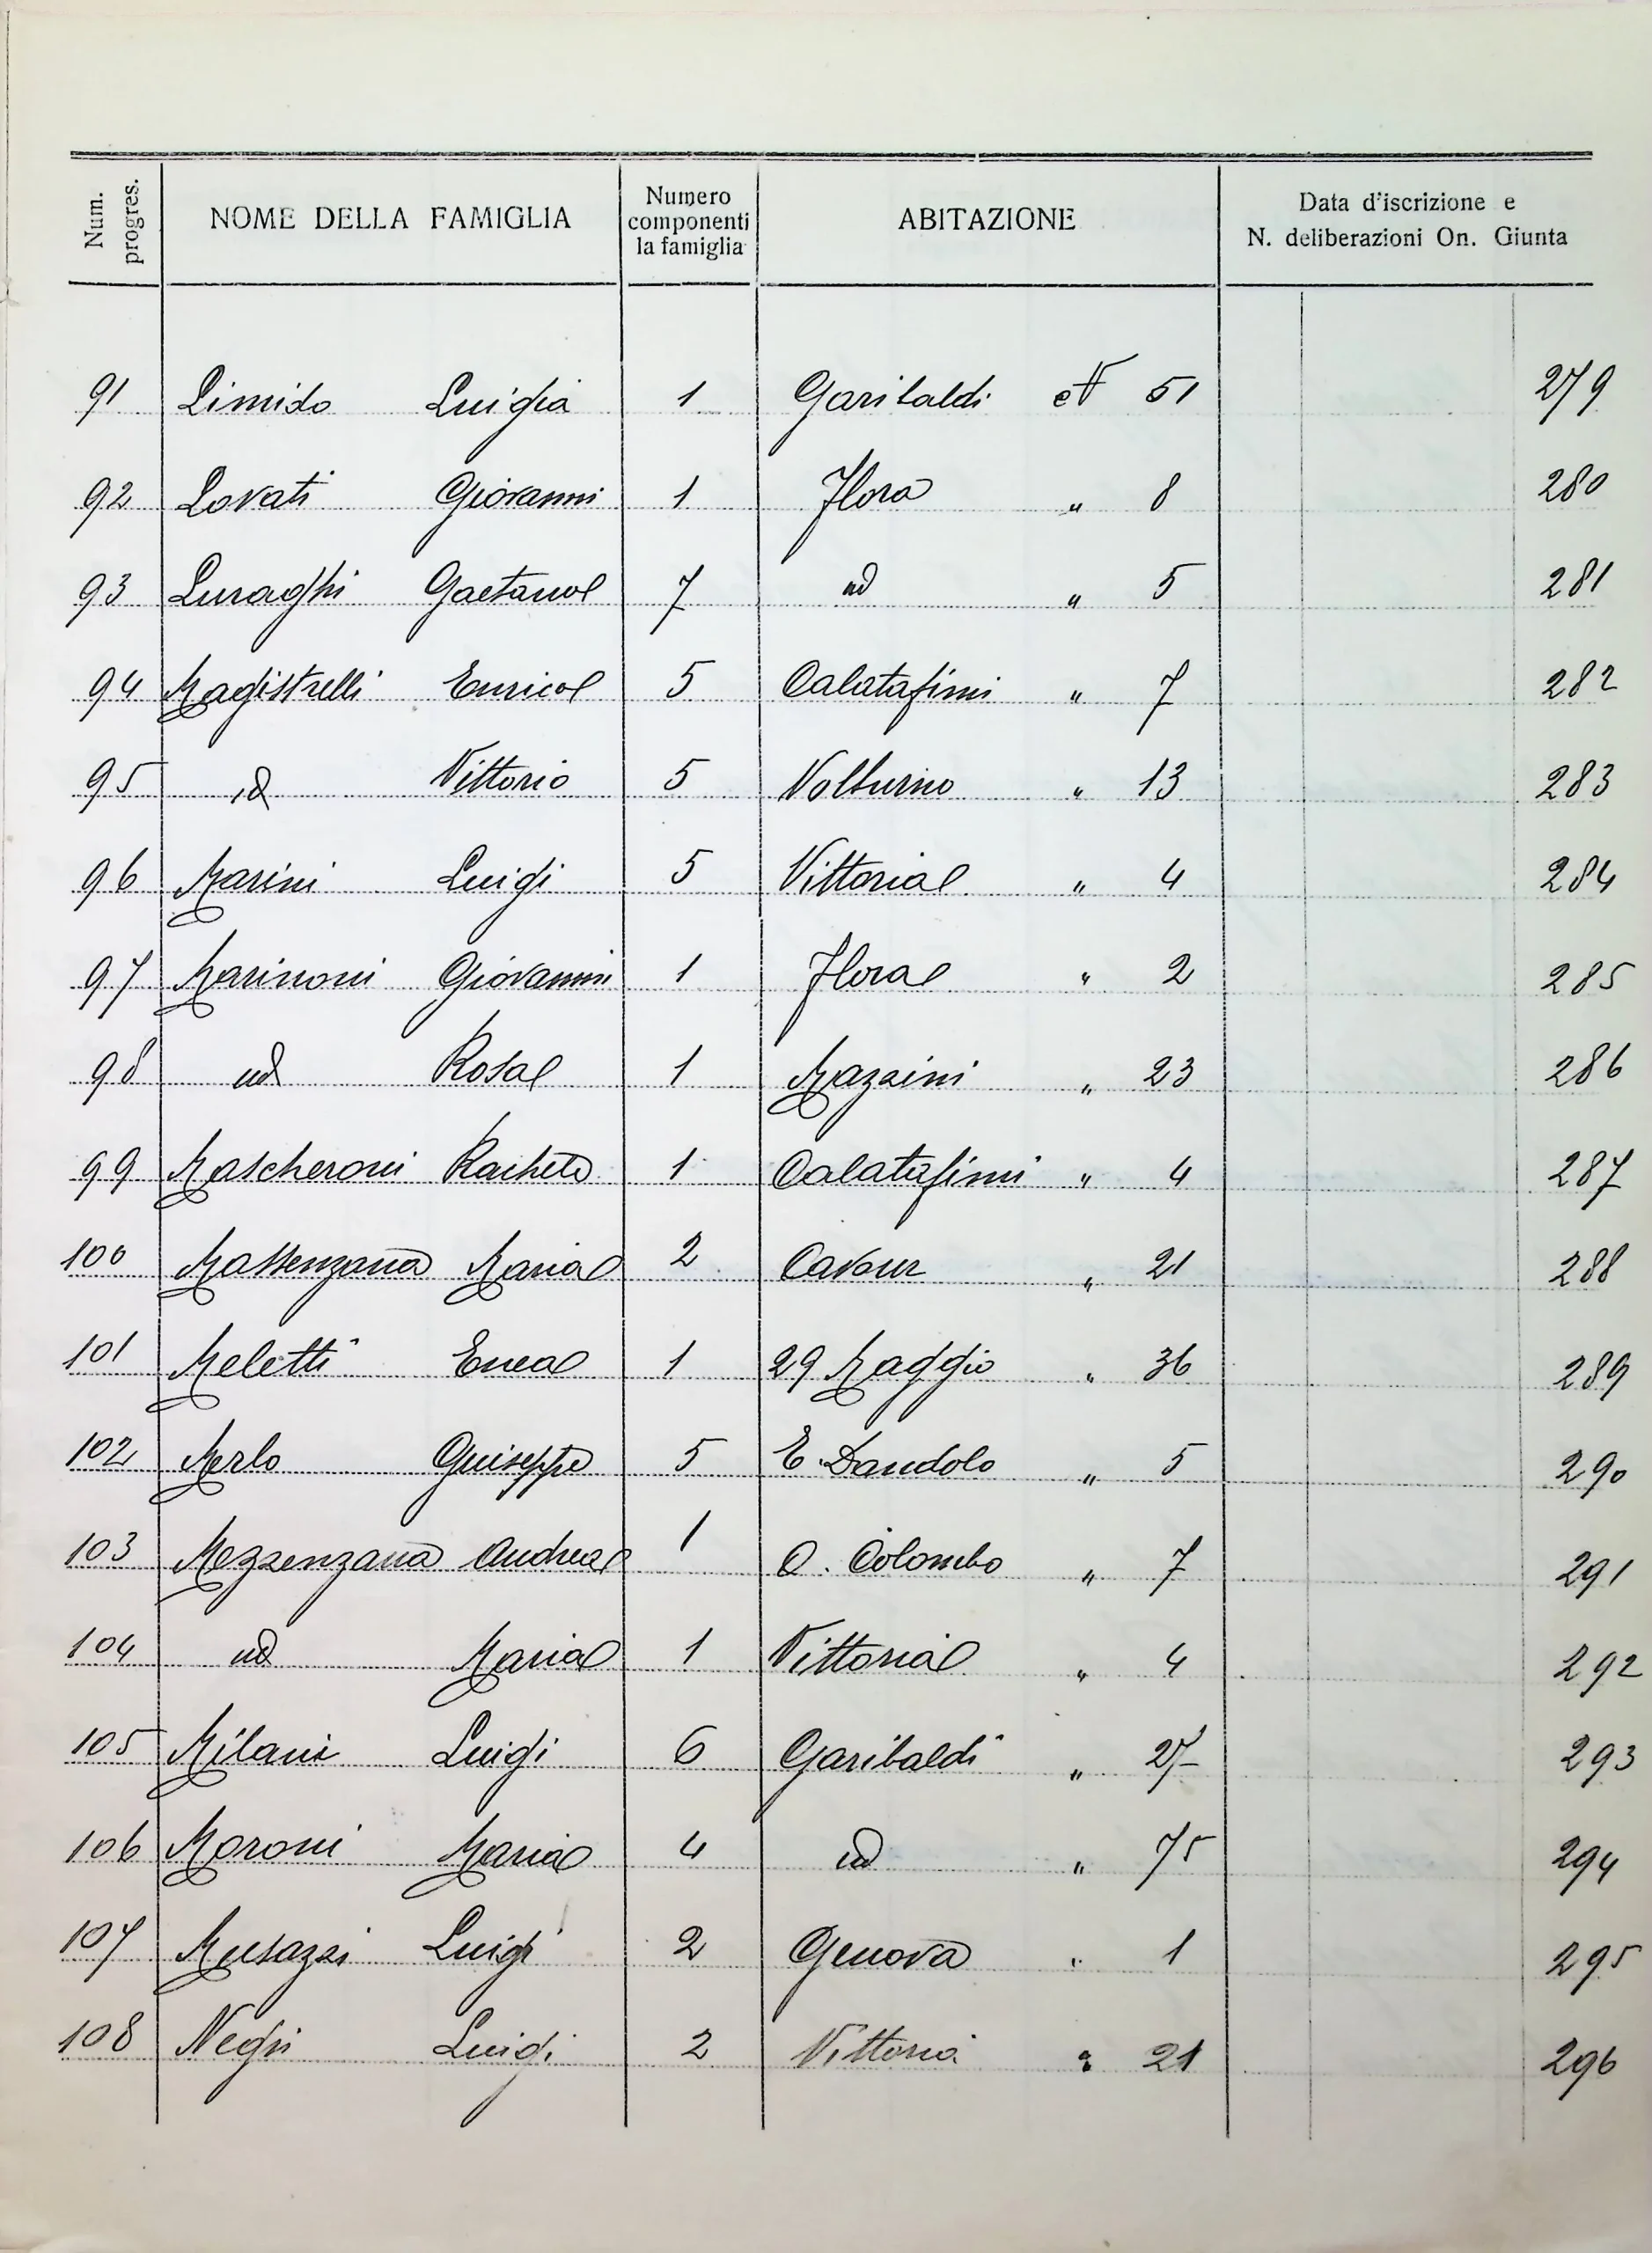 Num. progres. NOME DELLA FAMIGLIA Numero componenti la famiglia ABITAZIONE Data d'iscrizione e N. deliberazioni On. Giunta
91 Limido Luigia 1 Garibaldi N 51 279
92 Lovati Giovanni 1 Flora " 8 280
93 Luraghi Gaetano 7 id " 5 281
94 Magistrelli Enrico 5 Calatafimi " 7 282
95 id Vittorio 5 Volturno " 13 283
96 Marini Luigi 5 Vittoria " 4 284
97 Marinoni Giovanni 1 Flora " 2 285
98 id Rosa 1 Mazzini " 23 286
99 Mascheroni Rachele 1 Calatafimi " 4 287
100 Massenzana Maria 2 Cavour " 21 288
101 Meletti Enea 1 29 Maggio " 36 289
102 Merlo Guiseppe 5 E. Dandolo " 5 290
103 Mezzenzana Andrea 1 C. Colombo " 7 291
104 id Maria 1 Vittoria " 4 292
105 Milani Luigi 6 Garibaldi " 27 293
106 Moroni Maria 4 id " 75 294
107 Musazzi Luigi 2 Genova " 1 295
108 Negri Luigi 2 Vittoria " 21 296